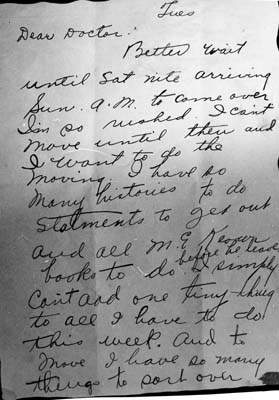 Tues
Dear Doctor:
Better wait
until Sat nite arriving
Sun. A.M. to come over
I'm so rushed I can't
move until then and
I want to do the
moving. I have so
many histories to do
Statments to get out
and all M.E. Keown
before he leaves
books to do. I simply
can't add one tiny thing
to all I have to do
this week. And to
move I have so many
things to sort over